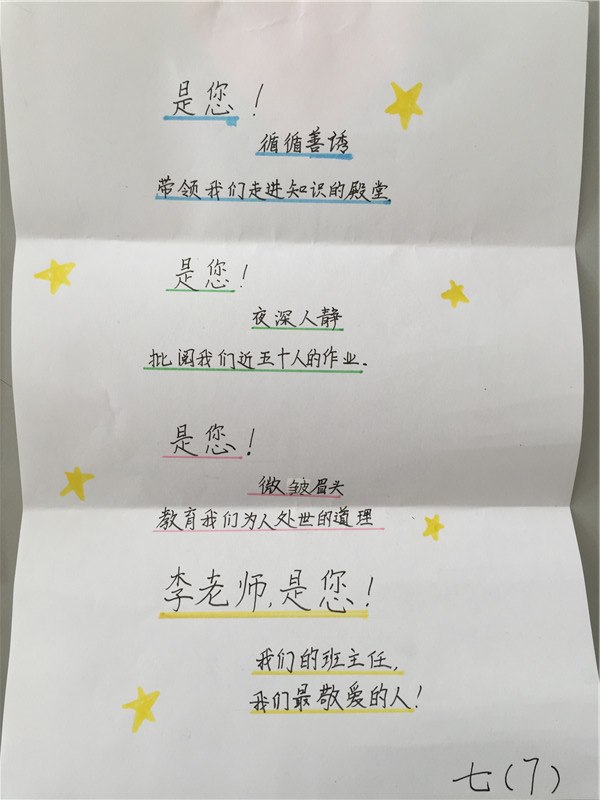 是您！
循循善诱
带领我们走进知识的殿堂
是您！
夜深人静
批阅我们近五十人的作业。
是您！
微皱眉头
教育我们为人处世的道理
李老师,是您！
我们的班主任,
我们最敬爱的人！
七(7)